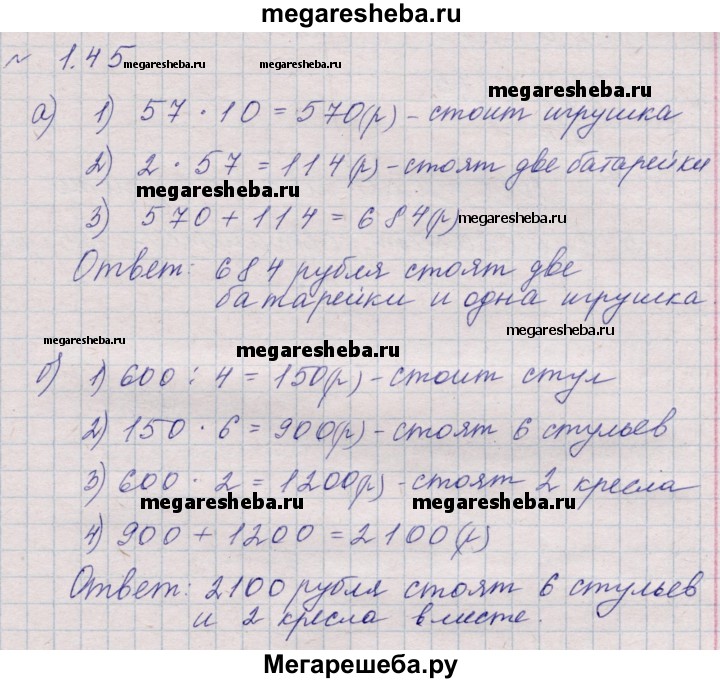 megaresheba.ru
№ 1.45 megaresheba.ru megaresheba.ru
megaresheba.ru
а) 1) 57 · 10 = 570(р) – стоит игрушка
2) 2 · 57 = 114(р) – стоят две батарейки
megaresheba.ru
3) 570 + 114 = 684(р) megaresheba.ru
Ответ: 684 рубля стоят две
батарейки и одна игрушка
megaresheba.ru
megaresheba.ru megaresheba.ru
б) 1) 600 : 4 = 150(р) – стоит стул
2) 150 · 6 = 900(р) – стоят 6 стульев
3) 600 · 2 = 1200(р) – стоят 2 кресла
megaresheba.ru megaresheba.ru
4) 900 + 1200 = 2100(р)
Ответ: 2100 рубля стоят 6 стульев
и 2 кресла вместе.
Мегарешеба.ру